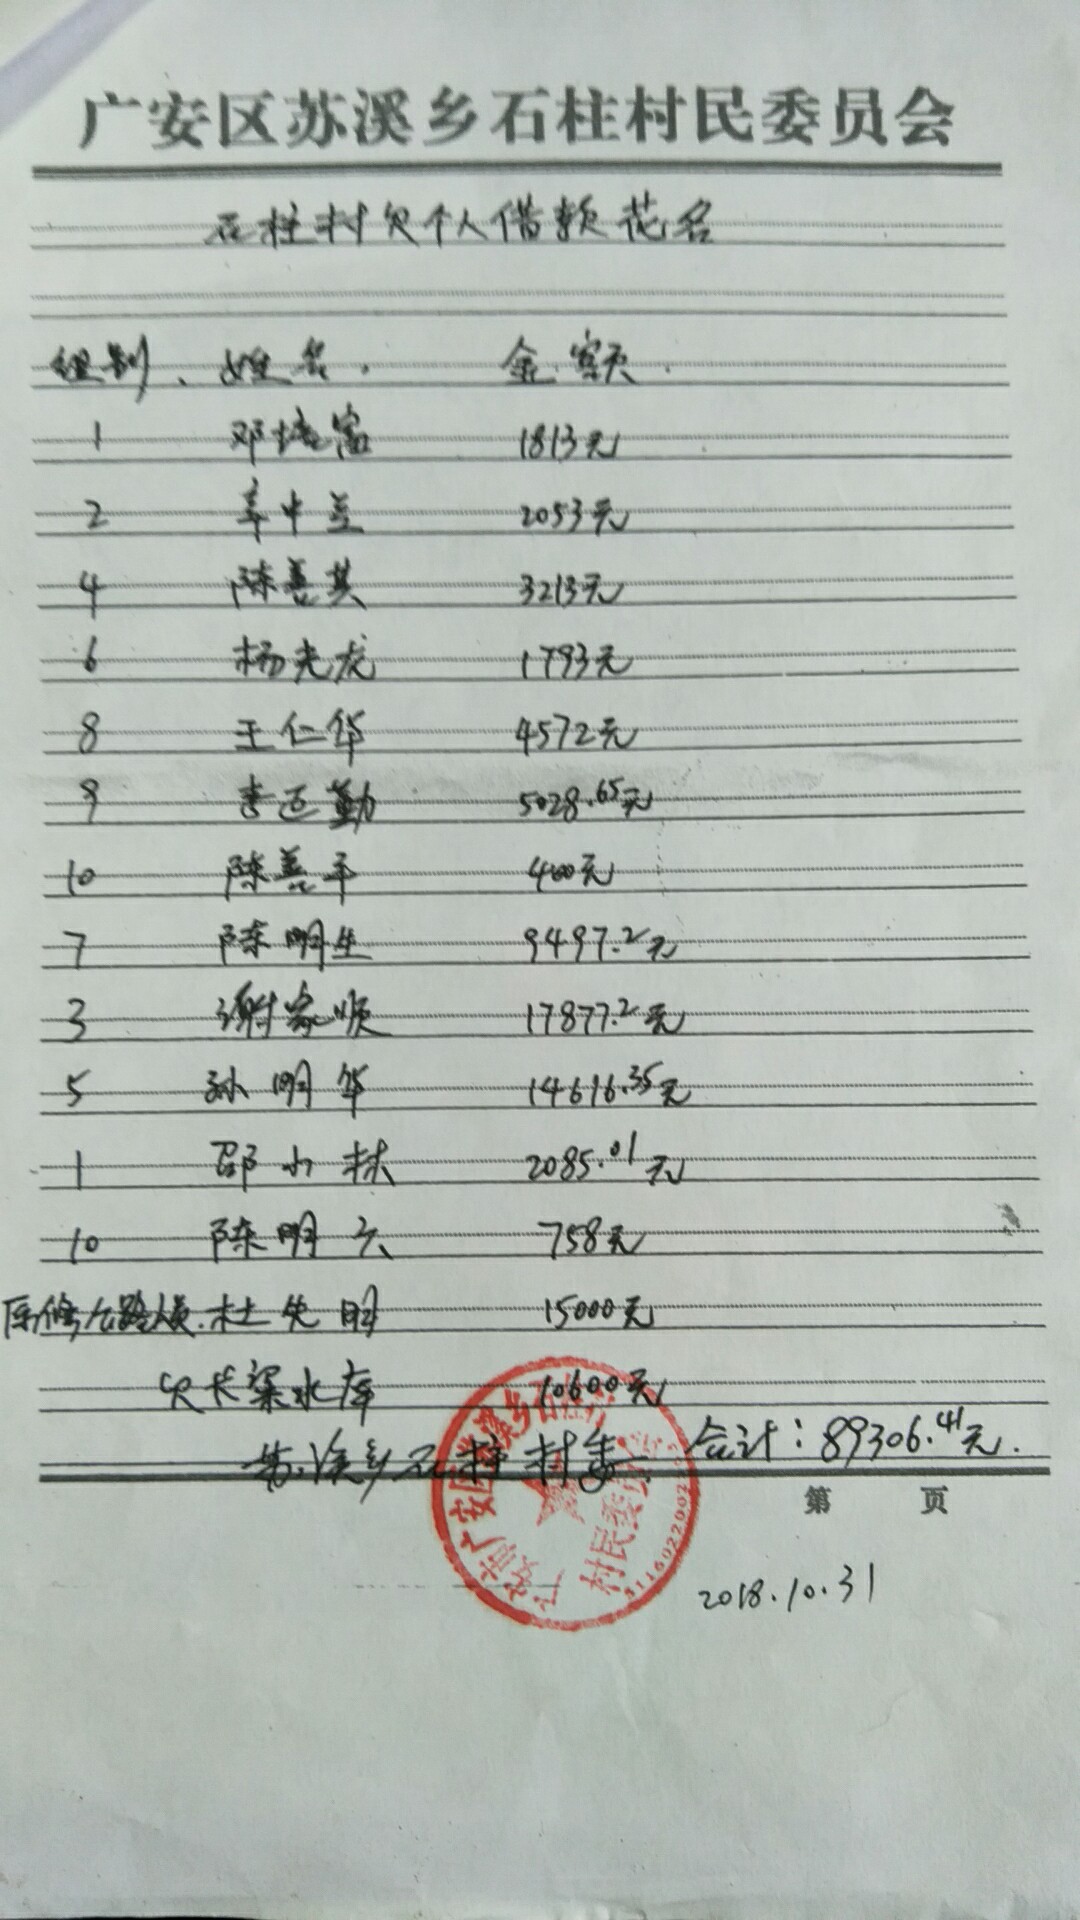 广安区苏溪乡石柱村民委员会
石柱村欠个人借款花名
组别、姓名. 金额.
1 邓培富 1813元
2 辛中兰 2053元
4 陈善其 3213元
6 杨光龙 1793元
8 王仁华 4572元
9 李运勤 5028.65元
10 陈善平 400元
7 陈明生 9497.2元
3 谢家顺 17877.2元
5 孙明华 14616.35元
1 邵小林 2085.01元
10 陈明六 758元
原修公路人员.杜先明 15000元
欠长梁水库 10600元
合计:89306.41元.
苏溪乡石柱村委
第 页
广安市广安区苏溪乡石柱村
村民委员会
2018.10.31